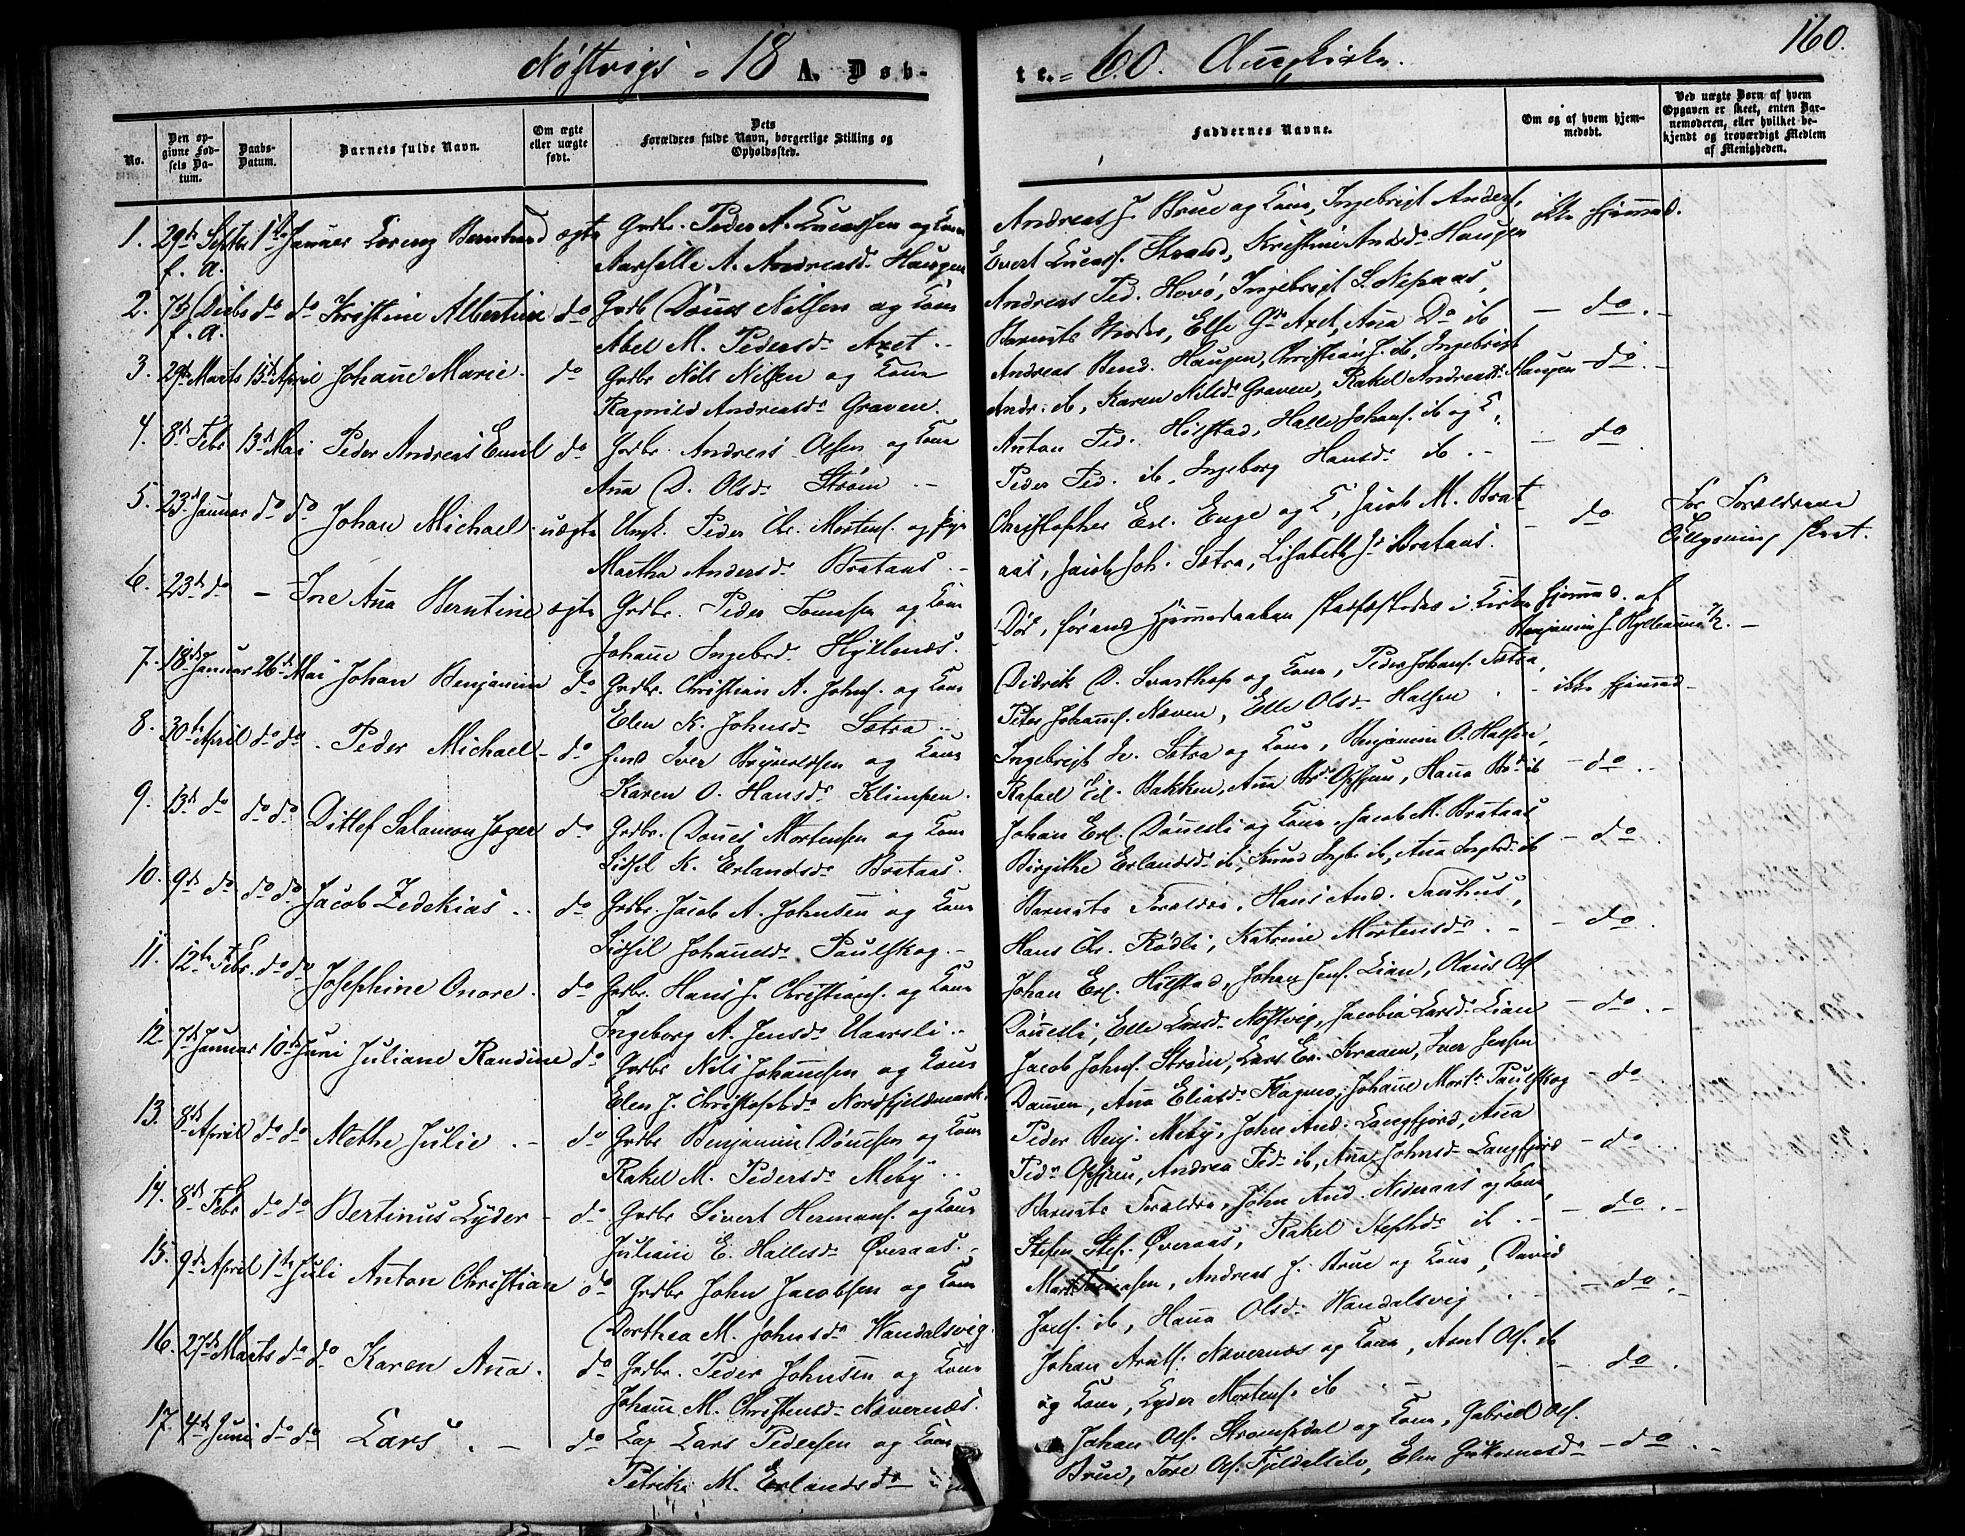 Nøstvigs - 18 A. Døb-
te. - 60. Annexkirke.
160.
No.
Den opgivne Fødsels Datum.
Daabs-Datum.
Barnets fulde Navn.
Om ægte eller uægte født.
Dets Forældres fulde Navn, borgerlige Stilling og Opholdssted.
Faddernes Navne.
Om og af hvem hjemmedøbt.
Ved uægte Børn af hvem Opgaven er skeet, enten Barnemoderen, eller hvilket bekjendt og troværdigt Medlem af Menigheden.
1. 29de Septbr f. A. 1ste Januar Lorentz Berntand ægte Grdbr. Peder A. Lucassen og Kone
Marselle A. Andreasd. Haugen
Andreas J. Brue og Kone, Ingebrigt Anders.
Evert Lucass. Strand, Kristine Andsd. Haugen
ikke hjemmed.
2. 7de Decbr f. A. do do Kristine Albertine do Grdb Dønes Nilsen og Kone
Abel M. Pedersd. Axet.
Andreas Ped. Hovø, Ingebrigt L. Nepaas,
Barnets Moder, Else Axet, Ana Do ib
- do. -
3. 29de Marts 15de April Johane Marie. do Grdbr Nils Nilsen og Kone
Ragnild Andreasd. Graven.
Andreas Bend. Haugen, Christian J. ib, Ingebrigt
Andr. ib, Karen Nilsd. Graven, Rakel Andreasd. Haugen
- do. -
4. 8de Febr 13de Mai Peder Andreas Emil do Grdbr. Andreas Olsen og Kone
Ana D. Olsd. Strøm
Anton Ped. Holstad, Halle Johans. ib og K,
Peder Ped. ib, Ingeborg Hansd. ib.
- do.
5. 23de Januar do do Johan Michael. uægte Ungk. Peder Chr. Mortens. og Pige
Martha Andersd. Brataas.
Christopher Erl. Enge og K, Jacob M. Brat
aas, Jacob Joh. Sætra, Lisabeth J. Brataas.
- do
For Forældrene
Oplysning skeet.
6. 23de do - Ine Ana Berntine ægte Grdbr. Peder Tomassen og Kone
Johane Ingebrd. Hyllenæs.
Død, førend Hjemmedaaben stadfæstedes i Kirken
hjemmed. af
Benjamin J.
7. 18de Januar 26de Mai Johan Benjamin do Grdbr. Christian A. Johns. og Kone
Elen K. Johnsd. Sætra
Didrik D. Svarthop og Kone, Peder Johans. Sætra,
Peter Johans. Næven, Elle Olsd. Halsen
- ikke hjemmed -
8. 30te April do do Peder Michael do Iver og Kone
Karen O. Hansd. Klimpen.
Ingebrigt Sætra og Kone, Benjamin O. Halsen,
Rafael Bakken, Ana Opsjøen, Hana ib
- do -
9. 13de do do do Ditlef Salamon Jæger do Grdbr. Dønes Mortensen og Kone
Sidsel K. Erlandsd. Brataas.
Johan Erl. Dønesli og Kone, Jacob M. Brataas
Birgithe Erlandsd. ib, Knud Ingb. ib, Ana Ingebd. ib
- do.
10. 9de do do do Jacob Zedekias do Grdbr. Jacob A. Johnsen og Kone
Sidsil Johansd. Paulskog.
Barnets Forældre, Hans And.
Hans Chr. Rødli, Katrine Mortensd.
- do.
11. 12te Febr. do do Josephine Onore. do Grdbr. Hans J. Christians. og Kone
Ingeborg A. Jensd.
Johan Erl. Holstad, Johan Jens. Lian, Olaus Ols.
Dønesli, Elle Larsd. Nøstvig, Jacobia Larsd. Lian
- do. -
12. 7de Januar 10de Juni Juliane Randine do Grdbr Nils Johansen og Kone
Elen J. Christophd. Nordfjeldmark.
Jacob Johns. Strøm, Lars Er. Kraaen, Iver Jensen
Damen, Ana Eliasd. Flagmo, Johane Mort. Paulskog
- do
13. 8de April do do Methe Julie do Grdbr Benjamin Dønesen og Kone
Rakel M. Pedersd. Meby
Peder Benj. Meby, John And. Langfjord, Ana
Pedr Opsjøen, Andrea Ped. ib, Ana Johnsd. Langfjord
- do.
14. 8de Febr do do Bertinus Lyder do Grdbr Sivert Hermans. og Kone
Juliane E. Hallesd. Øveraas.
Barnets Forældre, John And. Nederaas og Kone,
Stefen Stef. Øveraas, Rakel Stephd. ib.
- do. -
15. 9de April 1ste Juli Anton Christian do Grdbr John Jacobsen og Kone
Dorthea M. Johnsd. Wandalsvig.
Mort Tomasen, Andreas J. Brue og Kone, David
Jons. ib, Hana Olsd. Wandalsvig
- do. -
16. 27de Marts do do Karen Ana. do Grdbr. Peder Johnsen og Kone
Johane M. Christensd. Nævernæs.
Johan Arnts. Nævernæs og Kone, Arnt Ols. ib
og Kone, Lyder Mortens. ib
- do.
17. 4de Juni do do Lars. do Lars Pedersen og Kone
Petrike M. Erlandsd.
Johan Ols. Strømsdal og Kone, Gabriel Ols.
Brue, Tore Ols. Fjeldalslie, Elen
- do. -